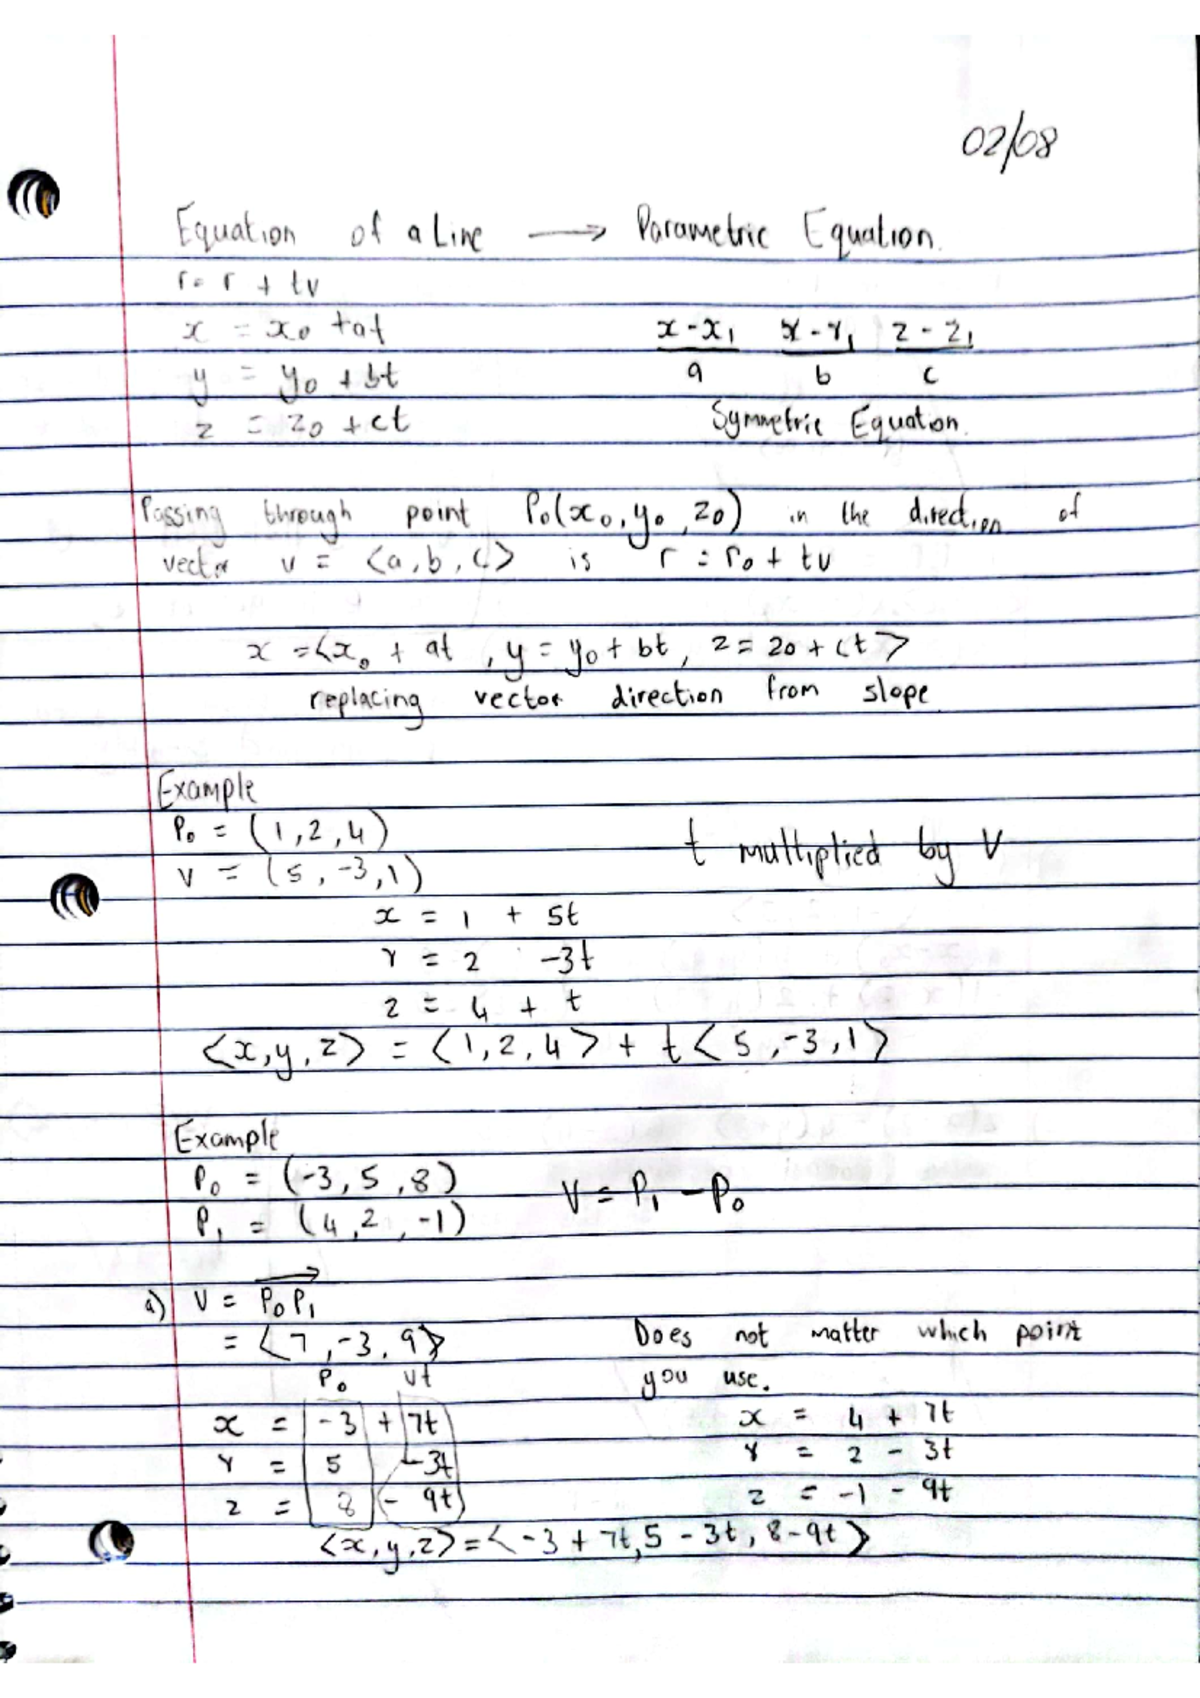 02/08
Equation of a Line → Parametric Equation.
r = r + tv
x = x₀ + at
y = y₀ + bt
z = z₀ + ct
x - x₁ / a   y - y₁ / b   z - z₁ / c
Symmetric Equation.
Passing through point P₀(x₀, y₀, z₀) in the direction of
vector v = <a, b, c> is r = r₀ + tv
x = <x₀ + at, y = y₀ + bt, z = z₀ + ct>
replacing vector direction from slope.
Example
P₀ = (1, 2, 4)
v = (5, -3, 1)
t multiplied by V
x = 1 + 5t
Y = 2 -3t
z = 4 + t
<x, y, z> = <1, 2, 4> + t<5, -3, 1>
Example
P₀ = (-3, 5, 8)
P₁ = (4, 2, -1)
V = P₁ - P₀
a) V = P₀P₁
= <7, -3, 9>
P₀ vt
x = -3 + 7t
Y = 5 -3t
z = 8 - 9t
Does not matter which point
you use.
x = 4 + 7t
Y = 2 - 3t
z = -1 - 9t
<x, y, z> = <-3 + 7t, 5 - 3t, 8 - 9t>